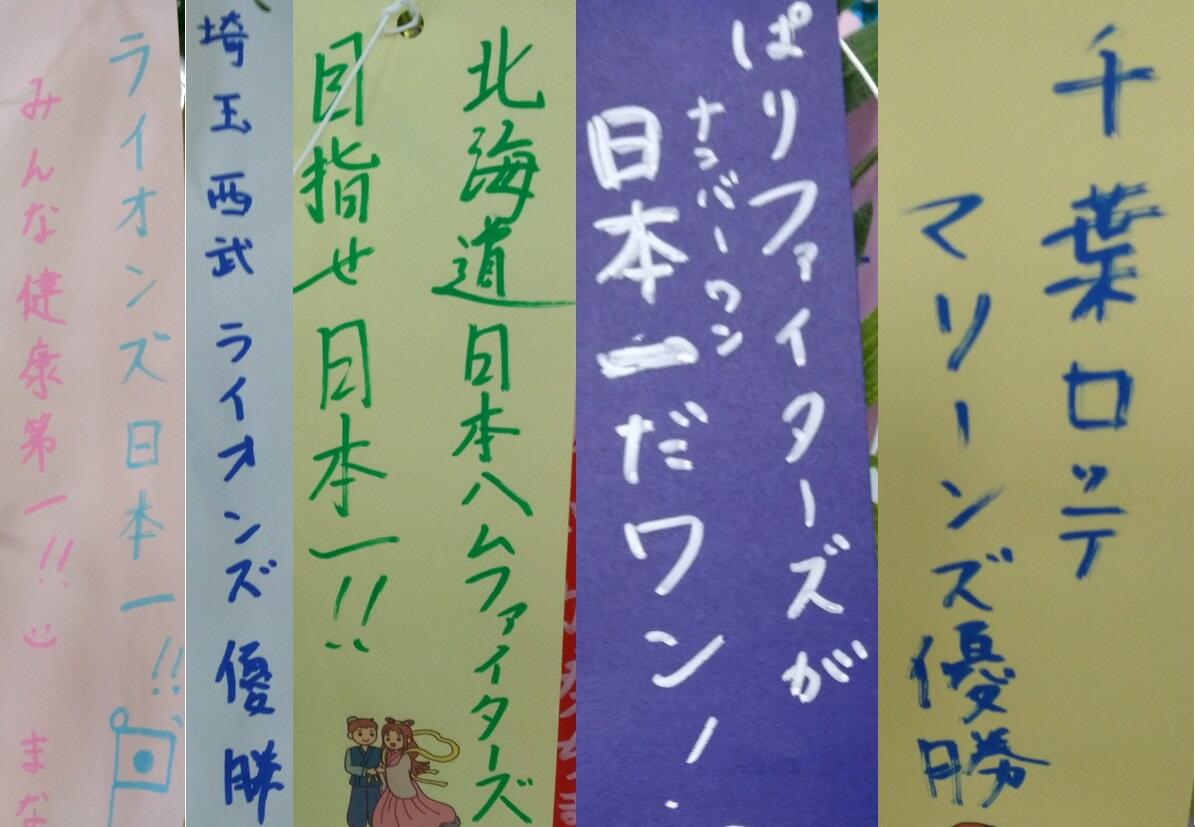 ライオンズ日本一!!
みんな健康第一!! まな
埼玉西武ライオンズ優勝
北海道日本ハムファイターズ
目指せ日本一!!
ぱりファイターズが
ナンバーワン
日本一だワン!
千葉ロッテ
マリーンズ優勝